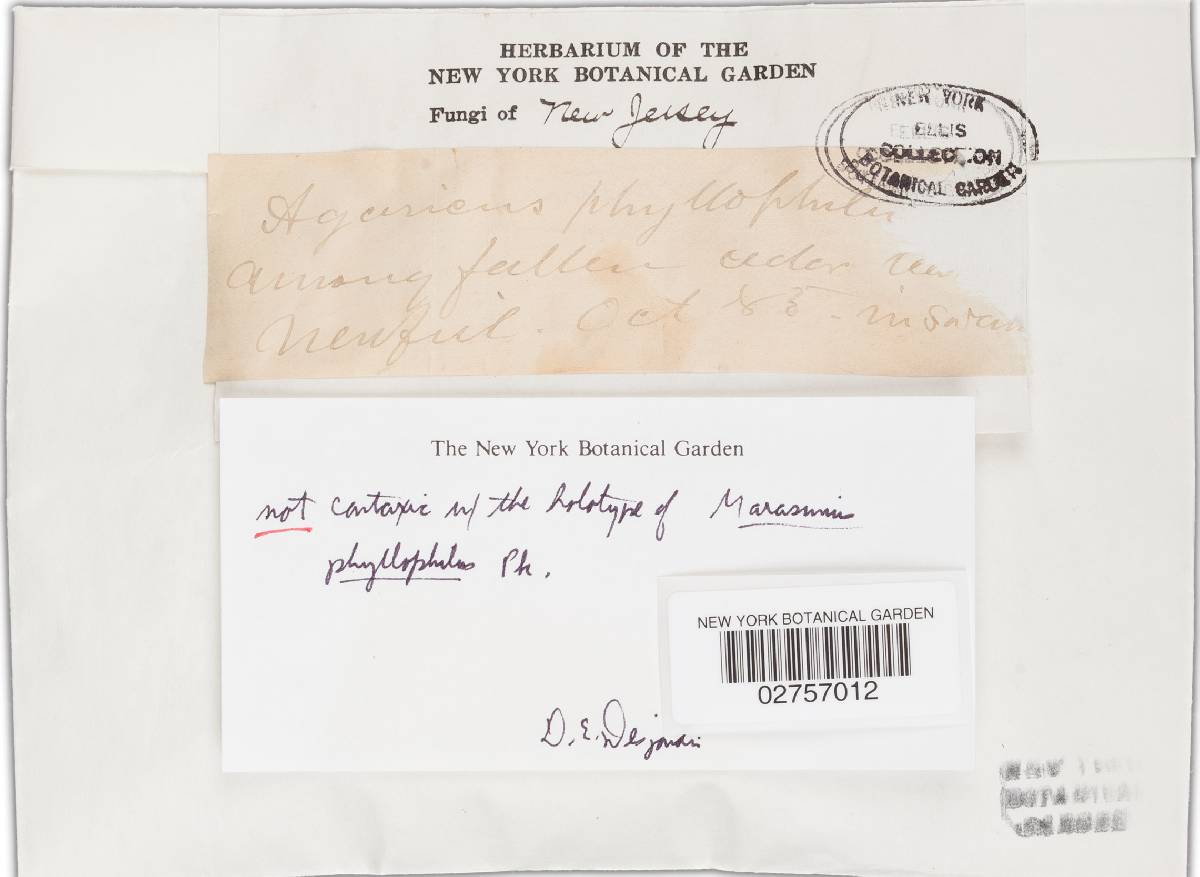 HERBARIUM OF THE
NEW YORK BOTANICAL GARDEN
Fungi of New Jersey
NEW YORK
ELLIS
COLLECTION
BOTANICAL GARDEN
Agaricus phyllophilu
among fallen cedar
Newfield. Oct 85 - in swam
The New York Botanical Garden
not contaxic w/ the holotype of Marasmius
phyllophilus Pk.
NEW YORK BOTANICAL GARDEN
02757012
D. E. Desjardin
BOTANICAL